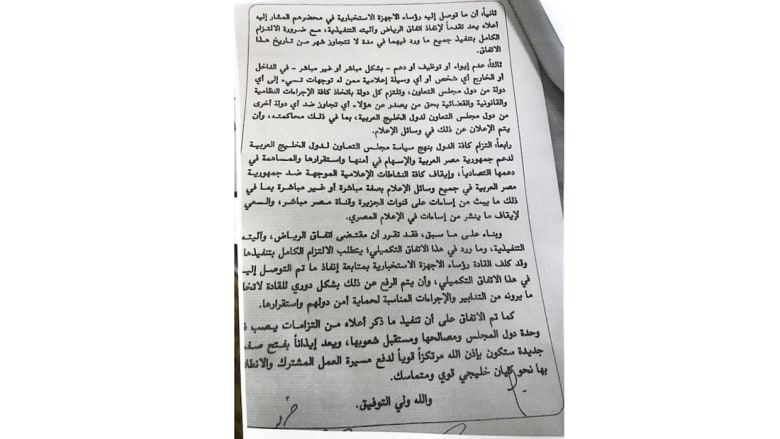 ثانياً: أن ما توصل إليه رؤساء الاجهزة الاستخبارية في محضرهم المشار إليه
أعلاه يعد تقدماً لإنفاذ اتفاق الرياض وآليته التنفيذية، مع ضرورة الالتزام
الكامل بتنفيذ جميع ما ورد فيهما في مدة لا تتجاوز شهر من تاريخ هذا
الاتفاق.
ثالثاً: عدم إيواء أو توظيف أو دعم – بشكل مباشر أو غير مباشر – في الداخل
أو الخارج أي شخص أو أي وسيلة إعلامية ممن له توجهات تسيء إلى أي
دولة من دول مجلس التعاون، وتلتزم كل دولة باتخاذ كافة الإجراءات النظامية
والقانونية والقضائية بحق من يصدر عن هؤلاء أي تجاوز ضد أي دولة أخرى
من دول مجلس التعاون لدول الخليج العربية، بما في ذلك محاكمته، وأن
يتم الإعلان عن ذلك في وسائل الإعلام.
رابعاً: التزام كافة الدول بنهج سياسة مجلس التعاون لدول الخليج العربية
لدعم جمهورية مصر العربية والإسهام في أمنها واستقرارها والمساهمة في
دعمها اقتصادياً، وإيقاف كافة النشاطات الإعلامية الموجهة ضد جمهورية
مصر العربية في جميع وسائل الإعلام بصفة مباشرة أو غير مباشرة بما في
ذلك ما يبث من إساءات على قنوات الجزيرة وقناة مصر مباشر، والسعي
لإيقاف ما ينشر من إساءات في الإعلام المصري.
وبناء على ما سبق، فقد تقرر أن مقتضى اتفاق الرياض، وآليته
التنفيذية، وما ورد في هذا الاتفاق التكميلي؛ يتطلب الالتزام الكامل بتنفيذها
وقد كلف القادة رؤساء الاجهزة الاستخبارية بمتابعة إنفاذ ما تم التوصل إليه
في هذا الاتفاق التكميلي، وأن يتم الرفع عن ذلك بشكل دوري للقادة لاتخا
ما يرونه من التدابير والإجراءات المناسبة لحماية أمن دولهم واستقرارها.
كما تم الاتفاق على أن تنفيذ ما ذكر أعلاه من التزامات يصب ف
وحدة دول المجلس ومصالحها ومستقبل شعوبها، ويعد إيذاناً بفتح صف
جديدة ستكون بإذن الله مرتكزاً قوياً لدفع مسيرة العمل المشترك والانطلا
بها نحو كيان خليجي قوي ومتماسك.
والله ولي التوفيق.